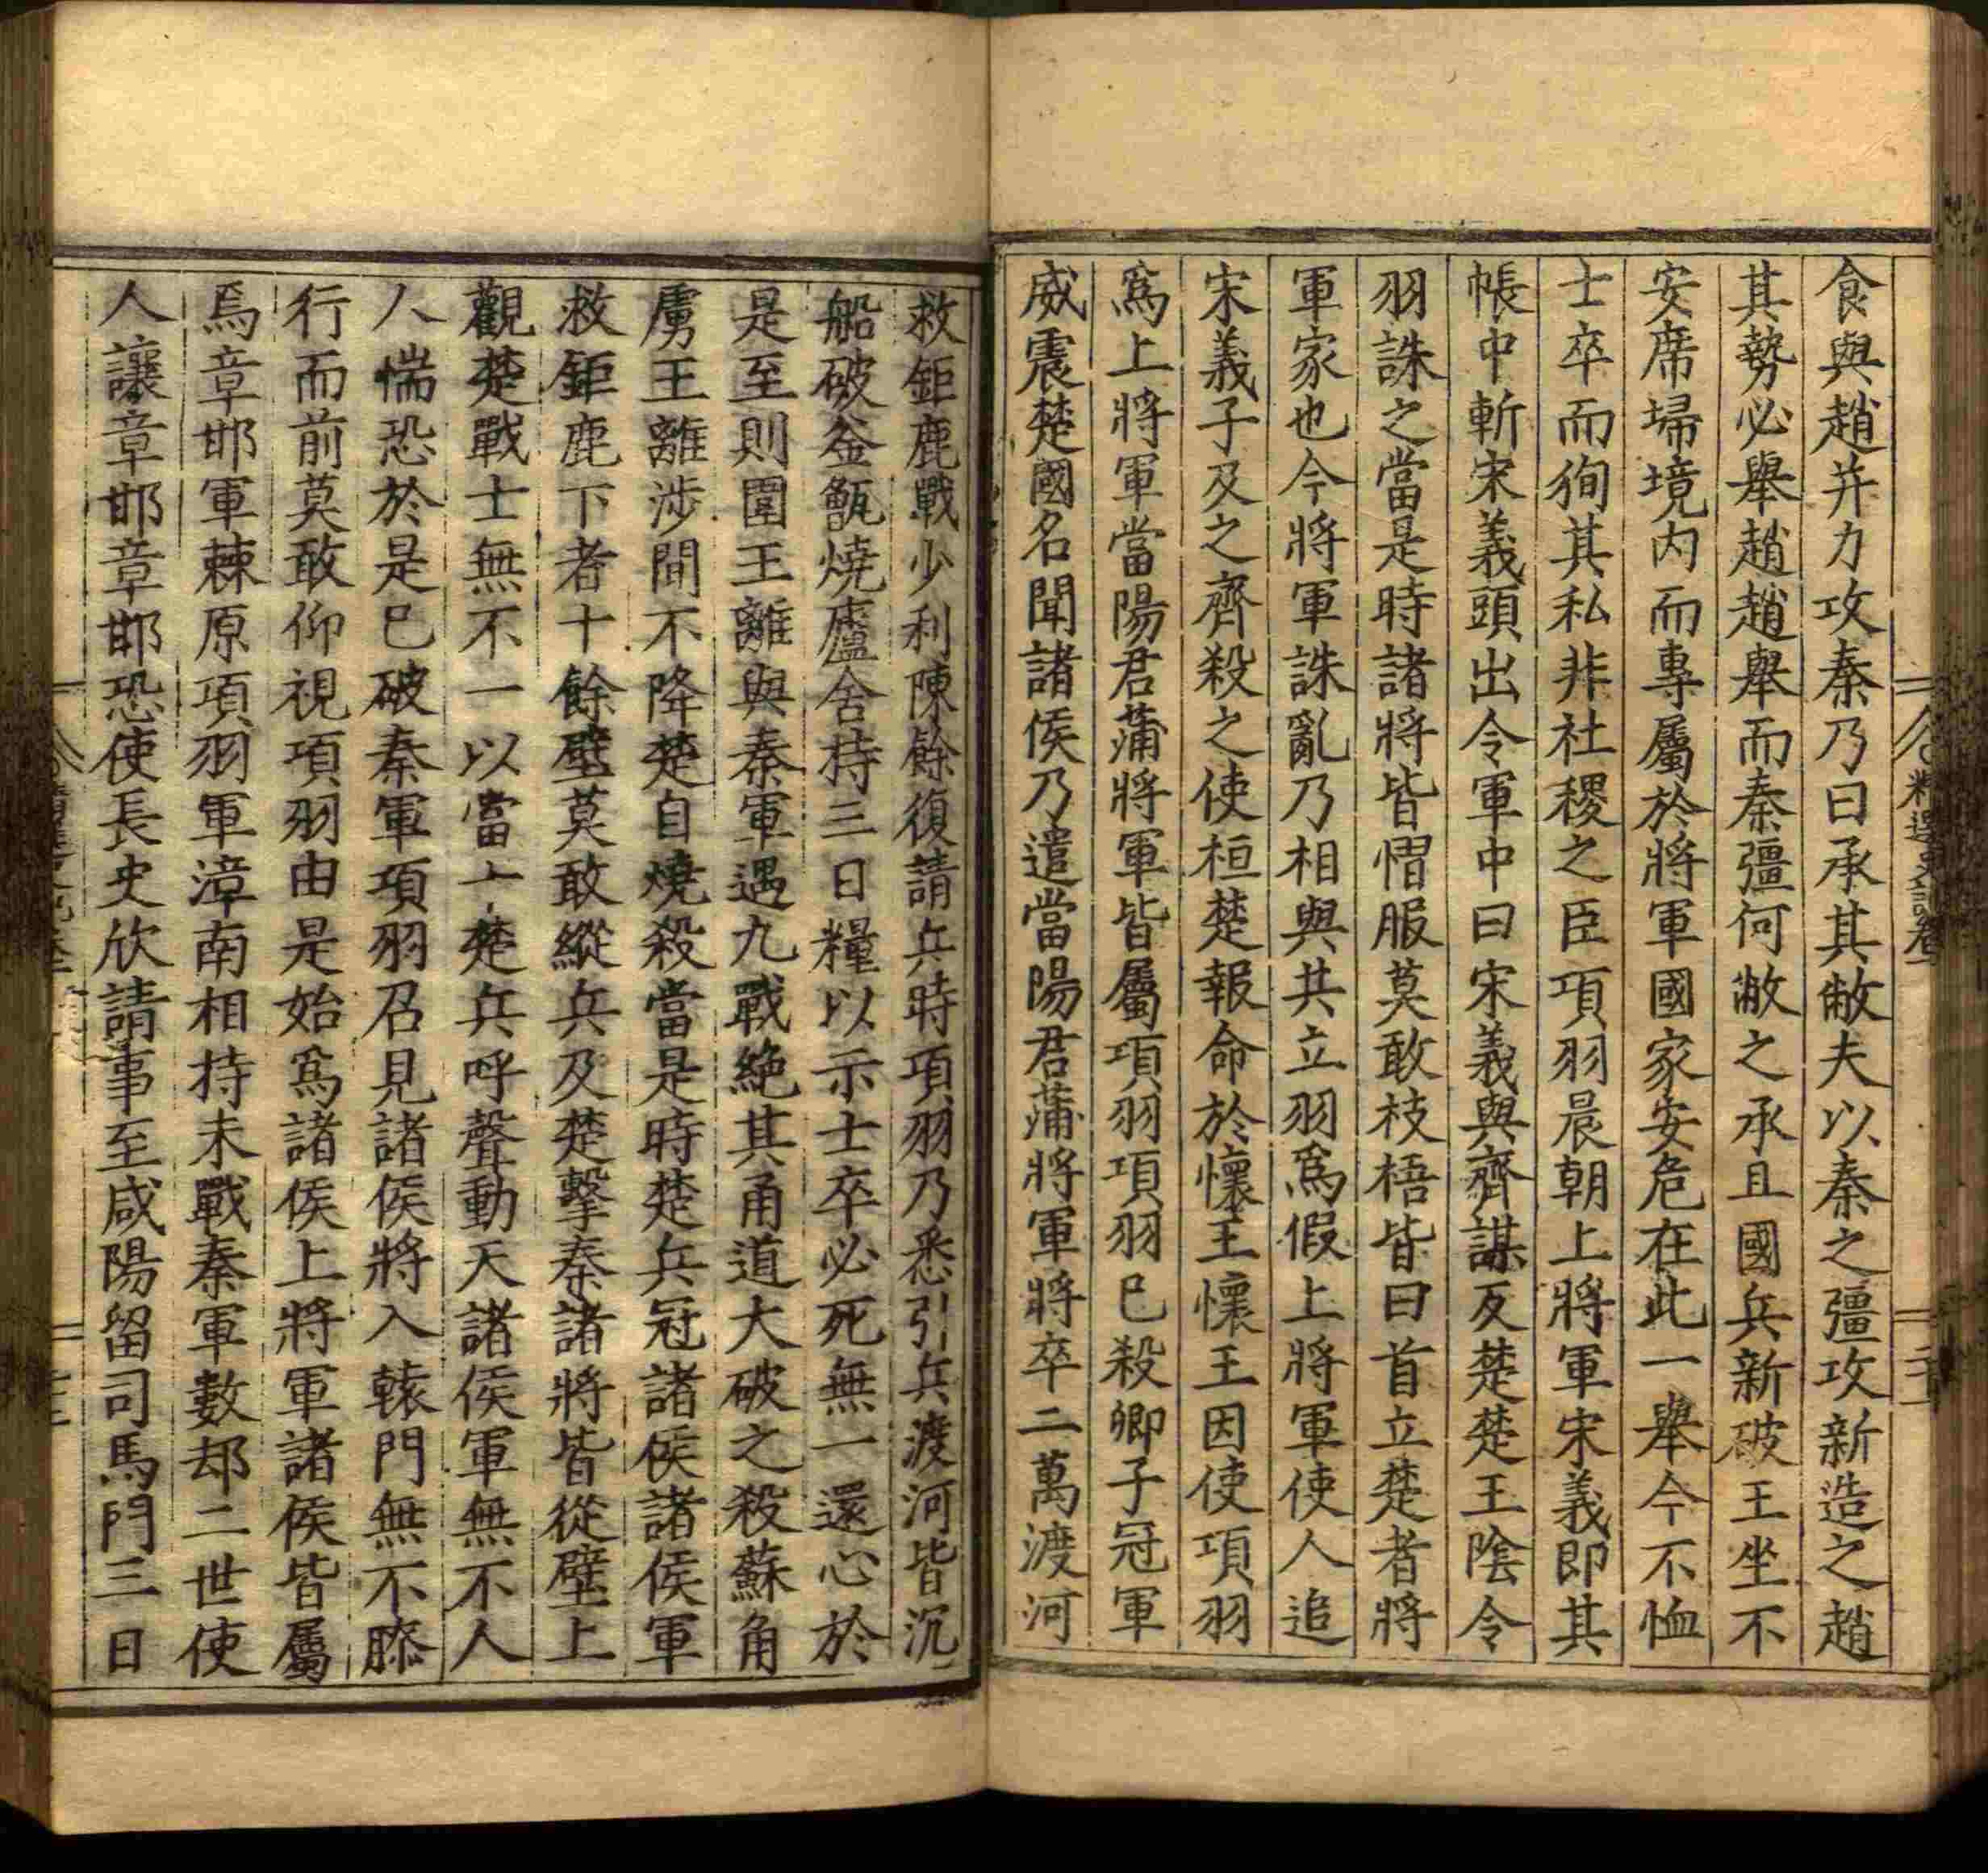 食與趙并力攻秦乃曰承其敝夫以秦之彊攻新造之趙
其勢必舉趙趙舉而秦彊何敝之承且國兵新破王坐不
安席埽境内而專屬於將軍國家安危在此一舉今不恤
士卒而徇其私非社稷之臣項羽晨朝上將軍宋義即其
帳中斬宋義頭出令軍中曰宋義與齊謀反楚楚王陰令
羽誅之當是時諸將皆慴服莫敢枝梧皆曰首立楚者將
軍家也今將軍誅亂乃相與共立羽爲假上將軍使人追
宋義子及之齊殺之使桓楚報命於懷王懷王因使項羽
爲上將軍當陽君蒲將軍皆屬項羽項羽已殺卿子冠軍
威震楚國名聞諸侯乃遣當陽君蒲將軍將卒二萬渡河
精選史記卷一
二十二
救鉅鹿戰少利陳餘復請兵時項羽乃悉引兵渡河皆沉
船破釜甑燒廬舍持三日糧以示士卒必死無一還心於
是至則圍王離與秦軍遇九戰絶其甬道大破之殺蘇角
虜王離涉間不降楚自燒殺當是時楚兵冠諸侯諸侯軍
救鉅鹿下者十餘壁莫敢縱兵及楚擊秦諸將皆從壁上
觀楚戰士無不一以當十楚兵呼聲動天諸侯軍無不人
人惴恐於是已破秦軍項羽召見諸侯將入轅門無不膝
行而前莫敢仰視項羽由是始爲諸侯上將軍諸侯皆屬
焉章邯軍棘原項羽軍漳南相持未戰秦軍數却二世使
人讓章邯章邯恐使長史欣請事至咸陽留司馬門三日